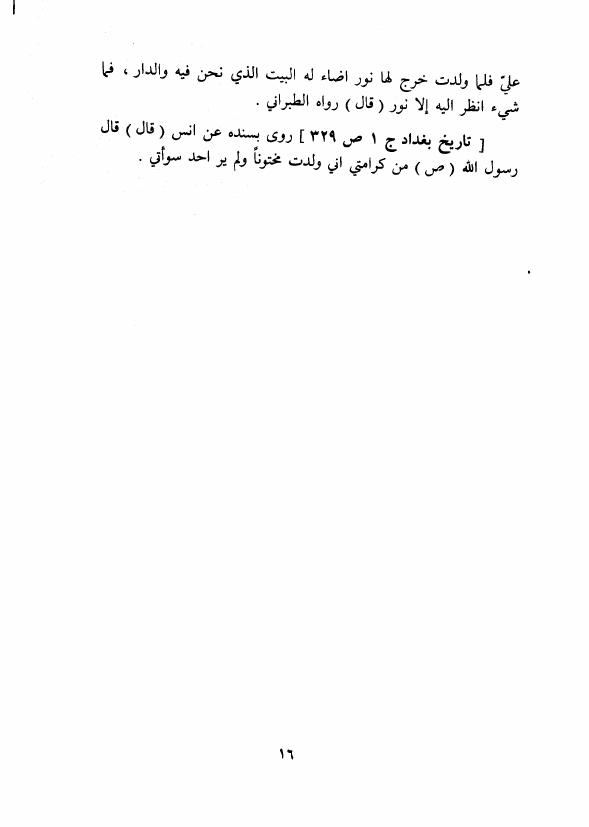 عليّ فلما ولدت خرج لها نور اضاء له البيت الذي نحن فيه والدار ، فما
شيء انظر اليه إلا نور ( قال ) رواه الطبراني .
[ تاريخ بغداد ج ١ ص ٣٢٩ ] روى بسنده عن انس ( قال ) قال
رسول الله ( ص ) من كرامتي اني ولدت مختوناً ولم ير احد سوأتي .
١٦